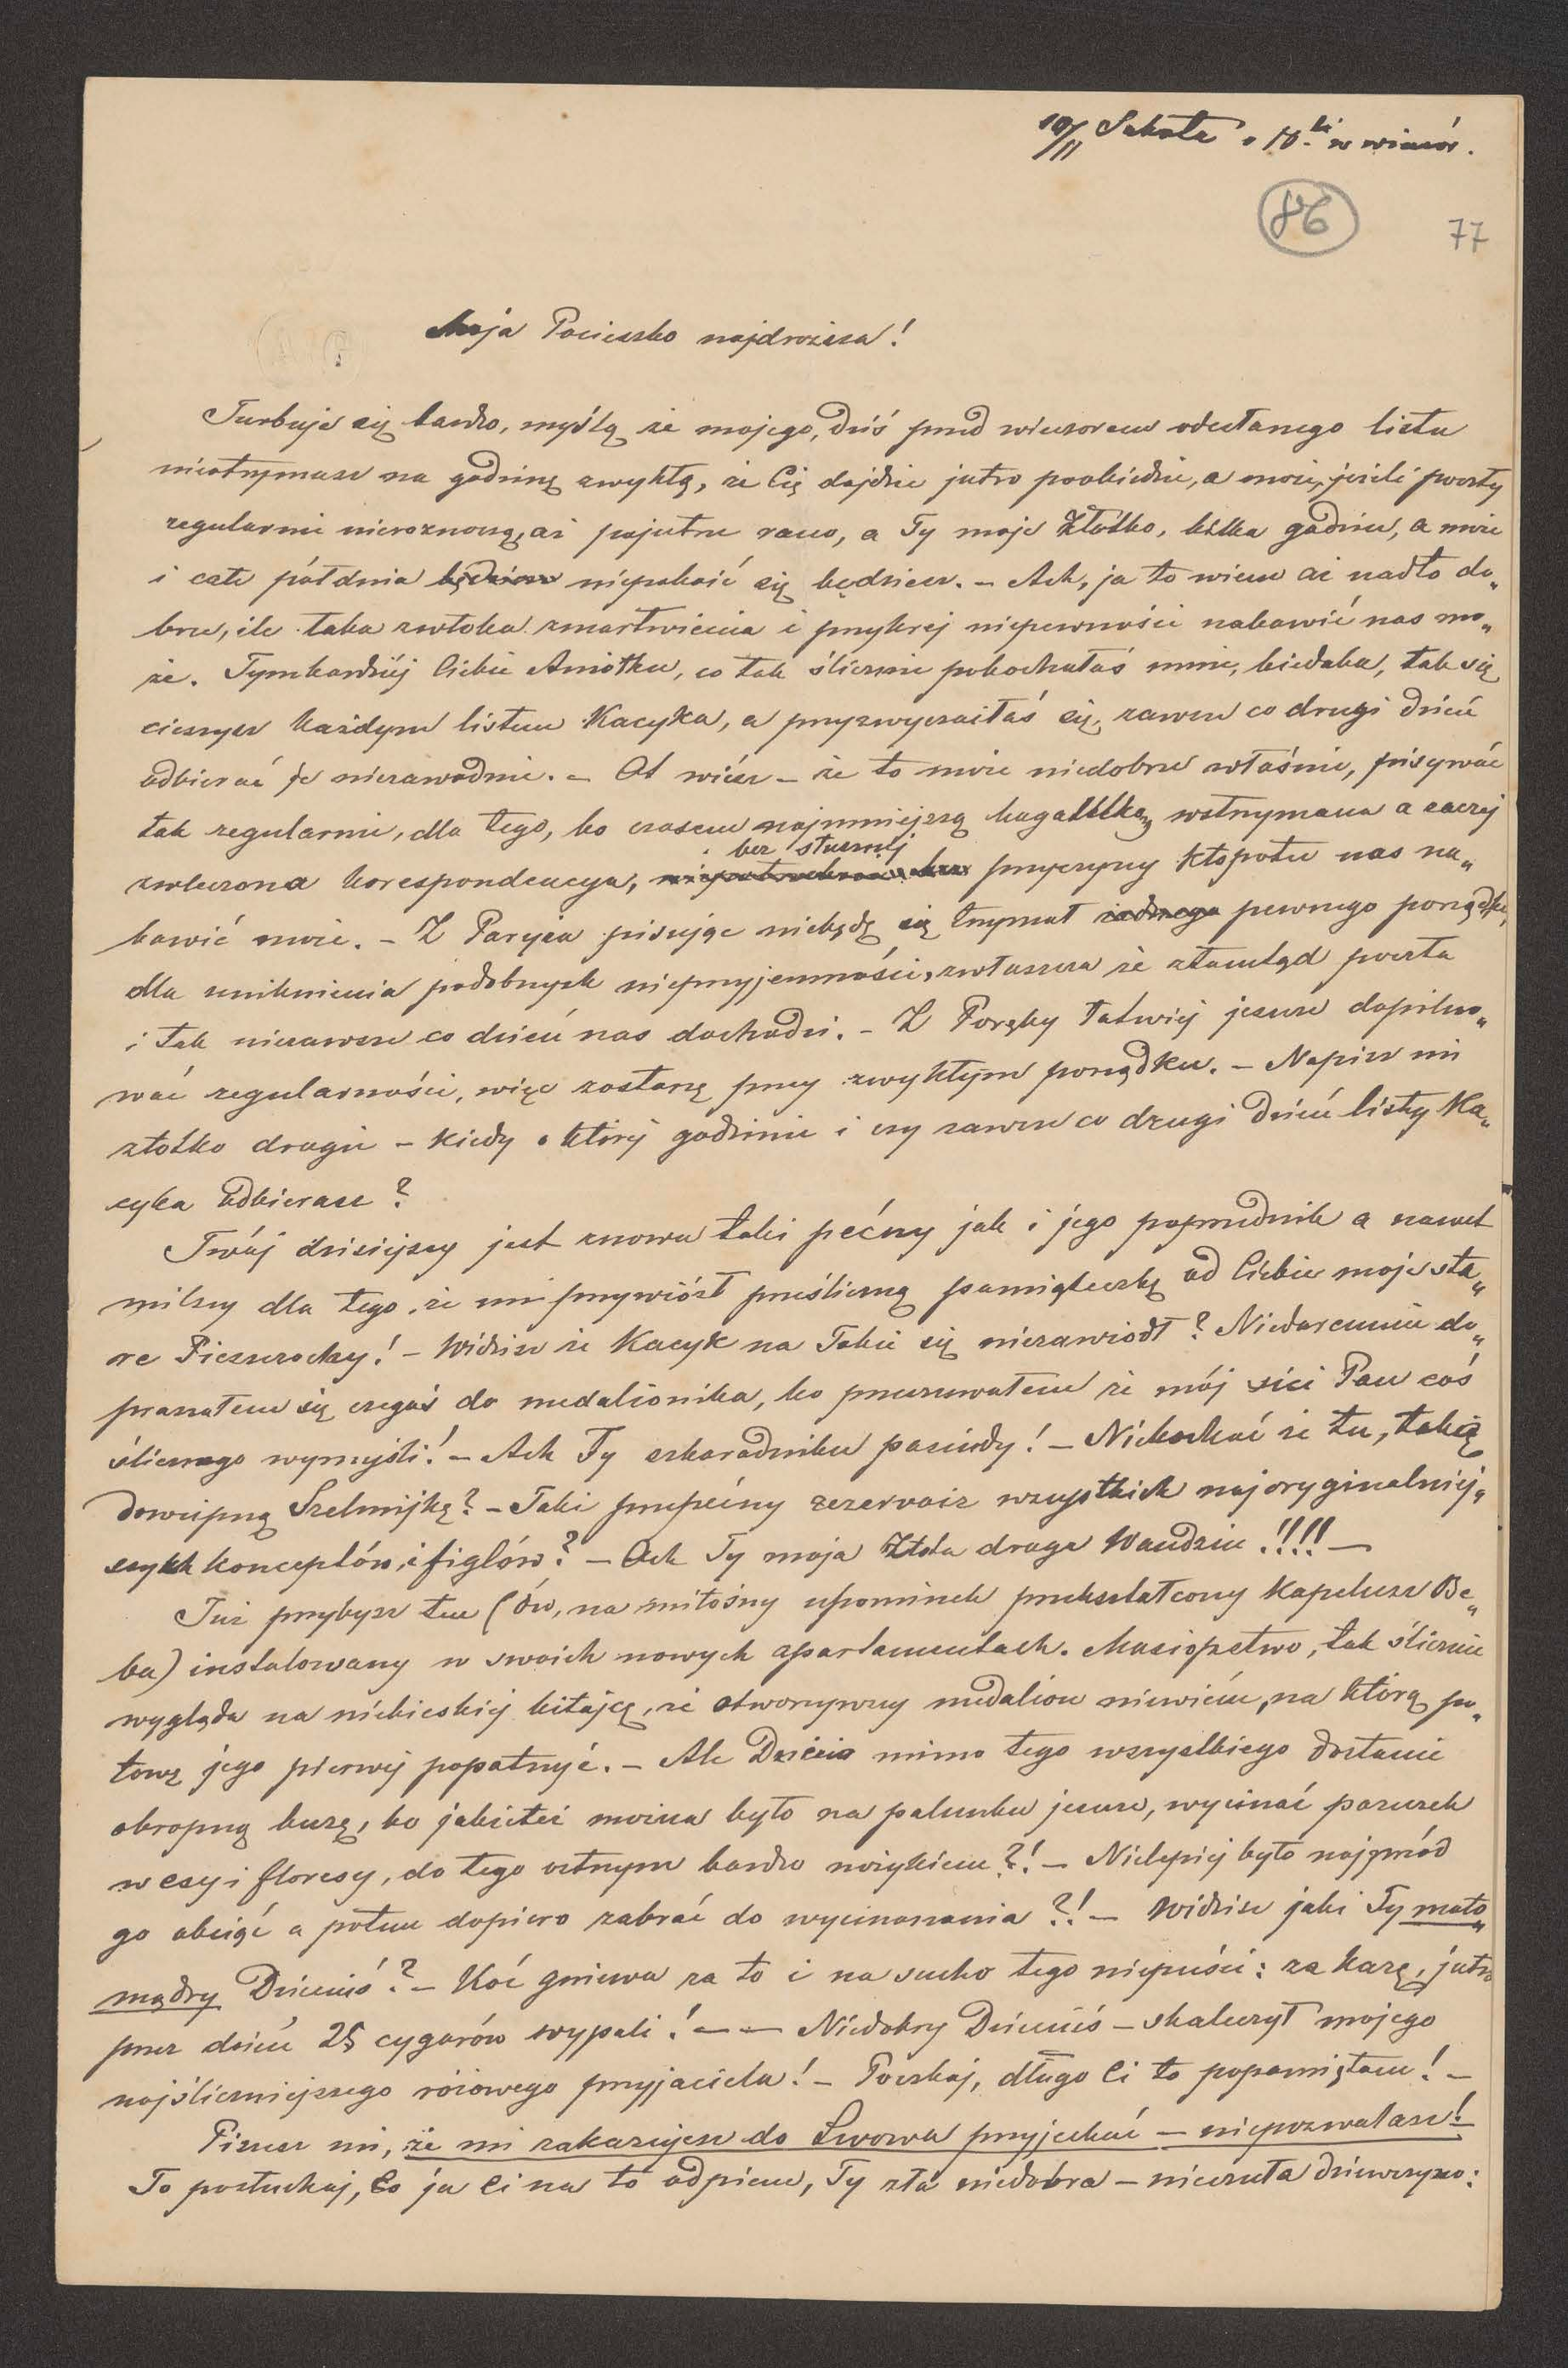 10/11 Sobota o 10.ki w wieczór.
86
77
Moja Pocieszko najdroższa!
Turbuję się bardzo, myślą że mojego, dziś przed wieczorem odesłanego listu
nieotrzymasz na godzinę zwykłą, że Cię dojdzie jutro poobiedzie, a może, jeżeli poczty
regularnie nieroznoszą, aż pojutrze rano, a Ty moje Złotko, kilka godzin, a może
i całe półdnia będziesz niepokoić się będziesz. – Ach, ja to wiem aż nadto do„
brze, ile taka zwłoka zmartwienia i przykrej niepewności nabawić nas mo„
że. Tymbardziéj Ciebie Aniołku, co tak ślicznie pokochałaś mnie, biedaka, tak się
cieszysz każdym listem Kacyka, a przyzwyczaiłaś się, zawsze co drugi dzień
odbierać je niezawodnie. – Ot wiész – że to może niedobrze właśnie, pisywać
tak regularnie, dla tego, bo czasem najmniejszą bagatelką, wstrzymana a raczej
zwleczona korespondencya, bez słusznéj przyczyny kłopotu nas na„
bawić może. – Z Paryża pisując niebędę się trzymał żadnego pewnego porządku,
dla uniknienia podobnych nieprzyjemności, zwłaszcza że ztamtąd poczta
i tak niezawsze co dzień nas dochodzi. – Z Poręby łatwiéj jeszcze dopilno„
wać regularności, więc zostanę przy zwykłym porządku. – Napisz mi
złotko drogie – kiedy o któréj godzinie i czy zawsze co drugi dzień listy Ka„
cyka odbierasz?
Twój dzisiejszy jest znowu taki pećny jak i jego poprzednik a nawet
milszy dla tego, że mi przywiózł prześliczną pamiąteczkę od Ciebie moje sta„
re Pieszczochy! – Widzisz że Kacyk na Tobie się niezawiódł? Niedaremnie do„
praszałem się czegoś do medalionika, bo przeczuwałem że mój sici Pan coś
ślicznego wymyśli! – Ach Ty szkaradniku paskudy! – Niekochać że tu, taką
dowcipną Szelmijkę? – Taki przepećny rezervoir wszystkich najoryginalniej„
szych konceptów i figlów? – Ach Ty moja Złota droga Wandziu!!!! –
Już przybysz ten (ów, na miłosny upominek przekształcony kapelusz Be„
ba) instalowany w swoich nowych apartamentach. Masiopstwo, tak ślicznie
wygląda na niebieskiéj kitajce, że otworzywszy medalion niewiém, na którą po„
łowę jego pierwéj popatrzyć. – Ale Dziécio mimo tego wszystkiego dostanie
okropną burę, bo jakieteż można było na paluszku jeszcze, wycinać pazurek
w esy i floresy, do tego ostrym bardzo nożykiem?! – Nielepiéj było najprzód
go obciąć a potem dopiero zabrać do wycinania?! – Widzisz jaki Ty mało„
mądry Dzieciuś? – Koć gniewa za to i na sucho tego niepuści: za karę, jutro
przez dzień 25 cygarów wypali! – – Niedobry Dzieciuś – skaleczył mojego
najśliczniejszego różowego przyjaciela! – Poczkaj, długo Ci to popamiętam! –
Piszesz mi, że mi zakazujesz do Lwowa przyjechać – niepozwalasz!
To posłuchaj, co ja Ci na to odpiszę, Ty zła niedobra – nieczuła dziewczyno: